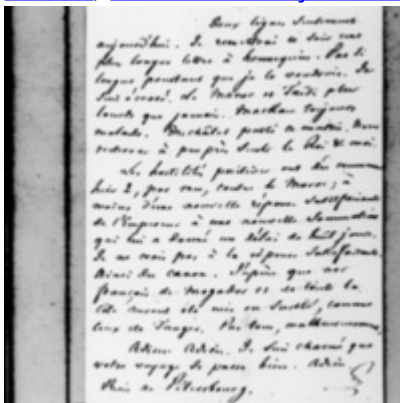 Deux lignes seulement
aujourd'hui. Je remettrai ce soir une
plus longue lettre à
longue pourtant que je le voudrois. Je
suis écrasé. Le Maroc et Taïti plus
lourds que jamais. Mackau toujours
malade. Duchâtel parti ce matin. Nous
resterons à peu près seuls le Roi & moi.
Les hostilités positives ont dû commencer
hier 2, par mer, contre le Maroc; à
moins d'une nouvelle réponse satisfaisante
de l'Empereur à une nouvelle sommation
qui lui a donné un délai de huit jours.
Je ne crois pas à la réponse satisfaisante.
Ainsi du canon. J'espère que nos
français de Mogador et de toute la
côte auront été mis en sureté, comme
ceux de Tanger. Pas tous, malheureusement.
Adieu. Adieu. Je suis charmé que
votre voyage se passe bien. Adieu
Rien de Pétersbourg.